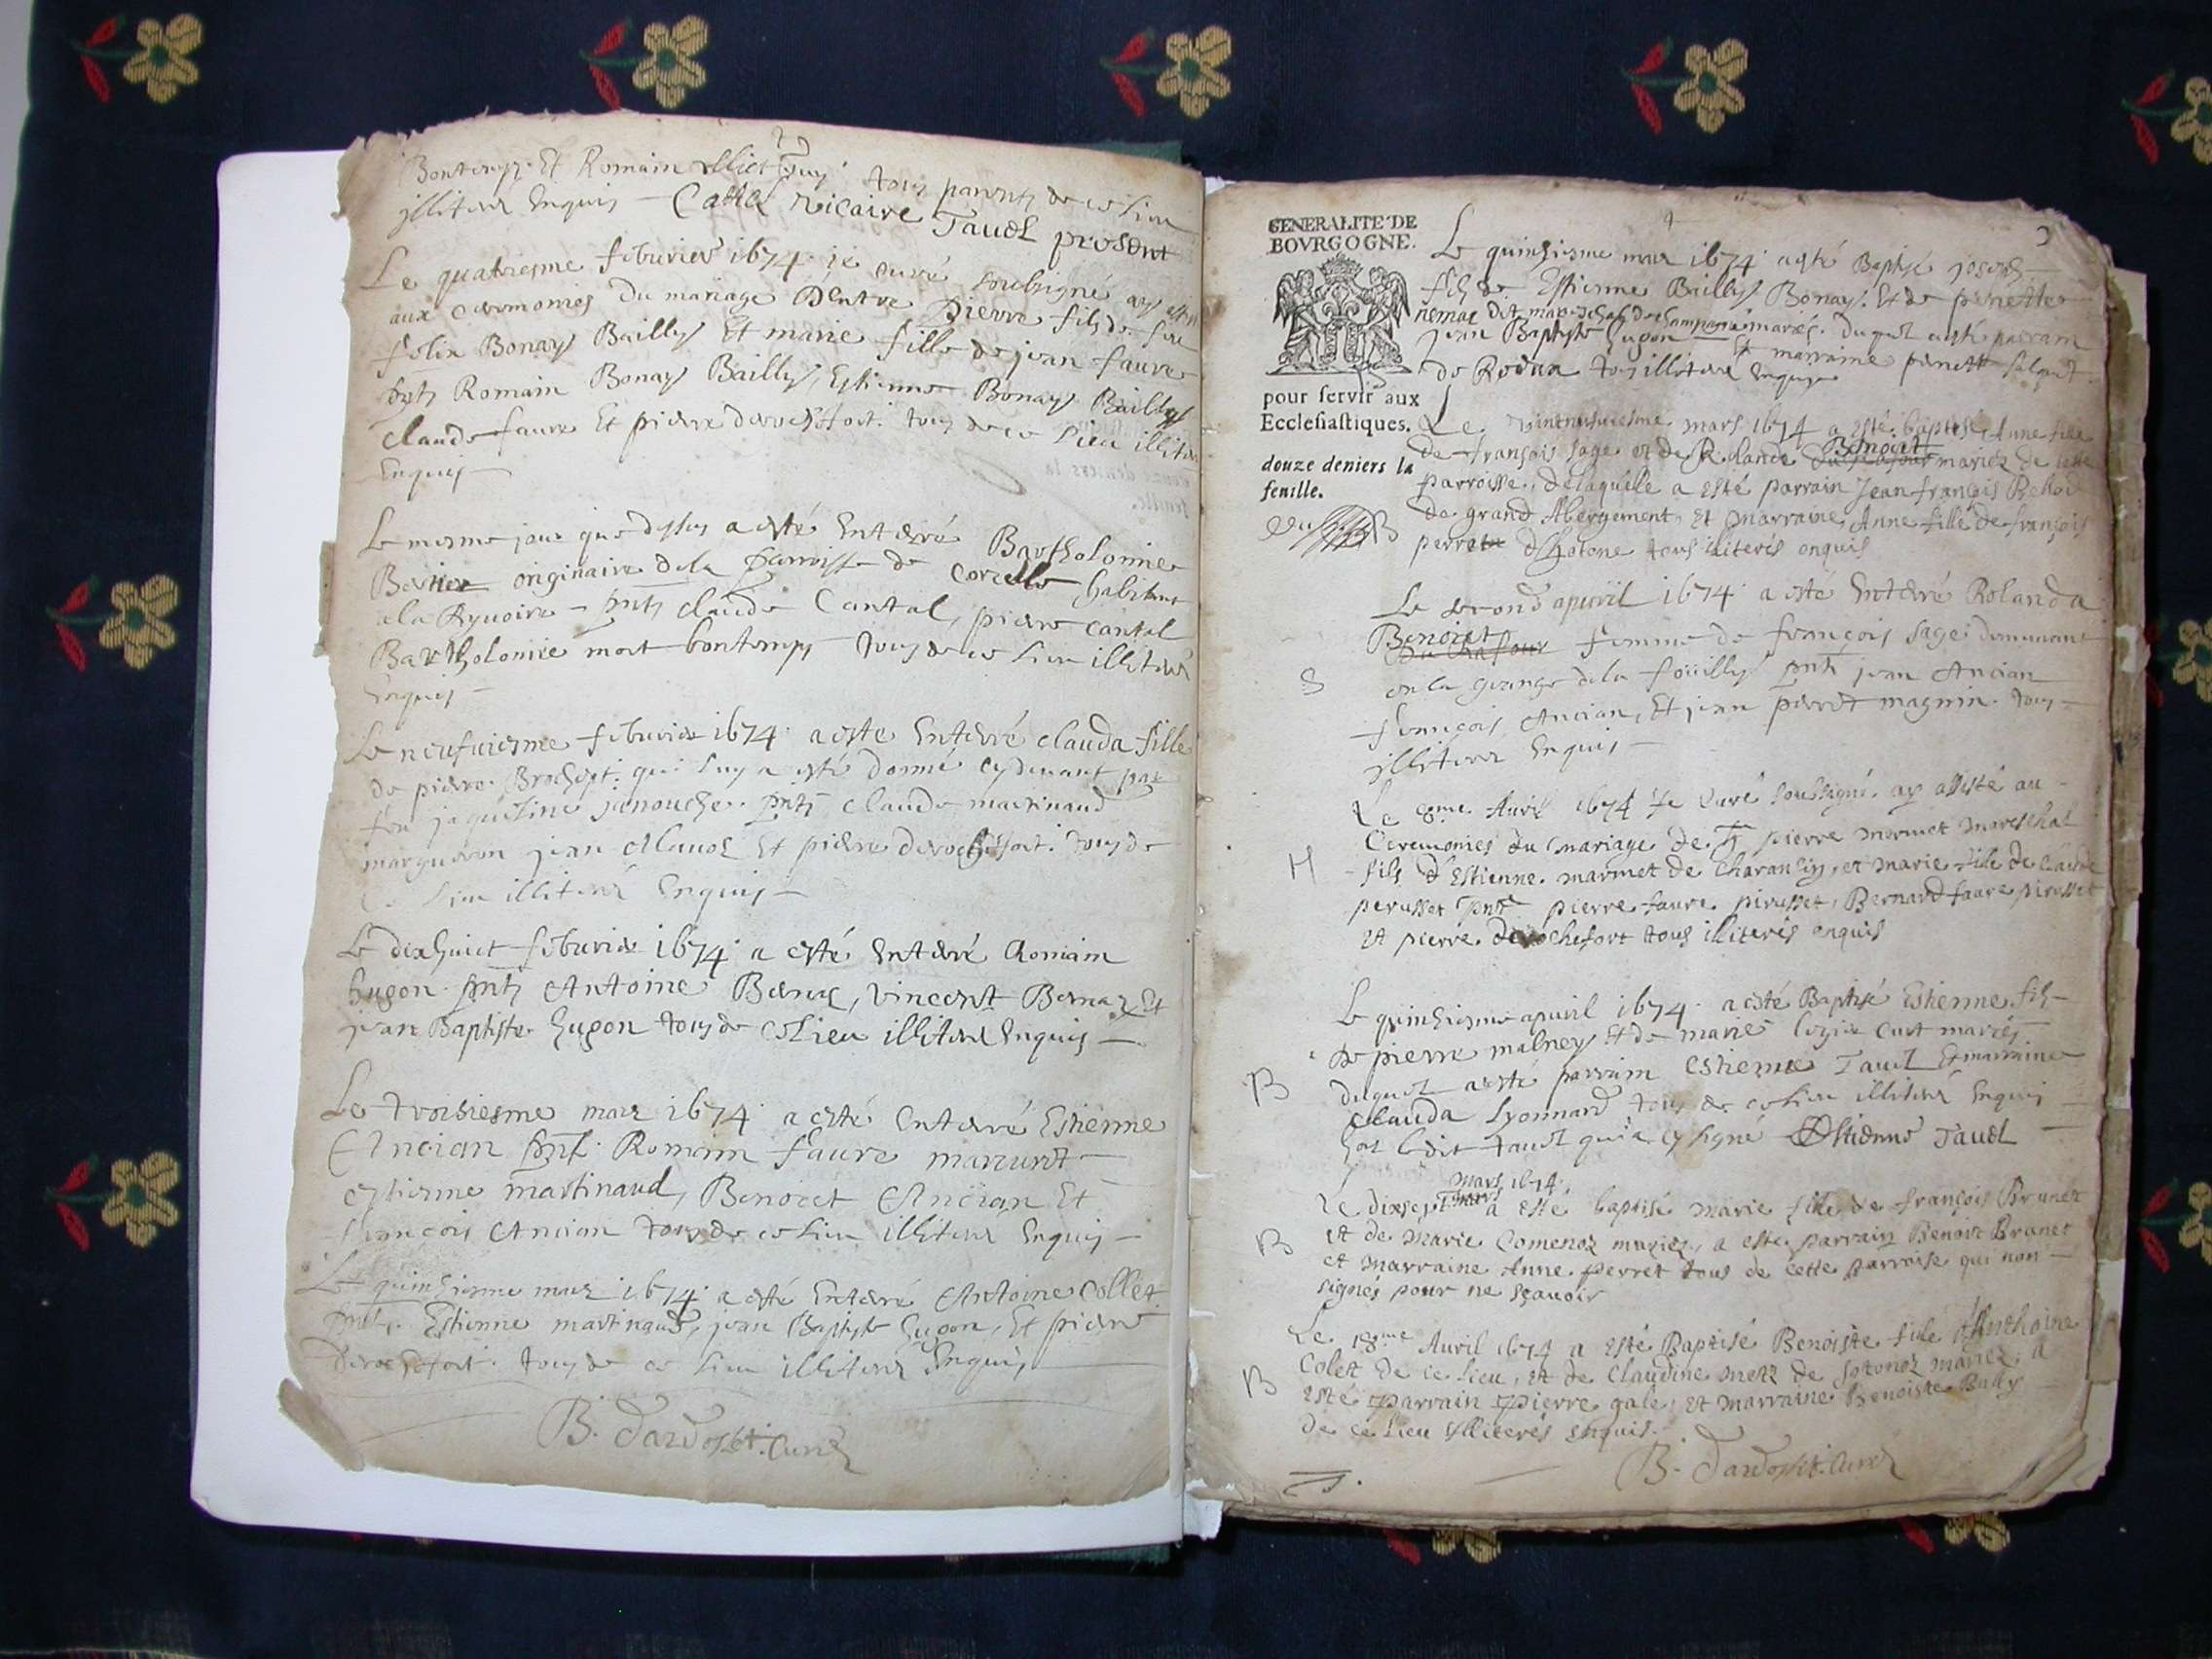 Bontemps Et Romain tous parents de ce Lieu
illiterés Enquis Vicaire Tauel present
Le quatriesme feburier 1674 je curé soubsigné ay
aux ceremonies du mariage Dentre Pierre fils de feu
felix Bonay Bailly Et marie fille de jean faure
pnts Romain Bonay Bailly, Estienne Bonay Bailly
claude faure Et pierre derochefort tous de ce Lieu illiterés
Enquis
Le mesme jour que dessus a esté Enterré Bartholomie
originaire de la parroisse de Corcelle habitant
a la Ryuoire pnts claude Cantal, pierre cantal
Bartholomie mort bontemps tous de ce Lieu illiterés
Enquis
Le neufuiesme feburier 1674 a este Enterré clauda fille
de pierre Brochept qui luy a esté donné cydeuant par
feu jaqueline janouche pnts claude martinaud
margueron jean Et pierre derochefort tous de
ce Lieu illiterés Enquis
Le dixhuict feburier 1674 a esté Enterré Romain
hugon pnts Antoine vincent Bernaz Et
jean Baptiste hugon tous de ce Lieu illiterés Enquis
Le troisiesme mars 1674 a esté Enterré Estienne
Ancian pnts Romain faure
estienne martinaud, Benoict Ancian Et
françois Ancian tous de ce Lieu illiterés Enquis
Le quinziesme mars 1674 a esté Enterré Antoine Collet
pnts Estienne martinaud, jean Baptiste hugon, Et pierre
derochefort tous de ce Lieu illiterés Enquis
B. Dardosset Curé
GENERALITE DE
BOVRGOGNE.
pour servir aux
Ecclesiastiques.
douze deniers la
feuille.
Le quinziesme mars 1674 a esté Baptisé joseph
fils de Estienne Bailly Bonay Et de pernette
dit mareschal de champagne mariés duquel a esté parrain
jean Baptiste hugon Et marraine pernette
de tous illiterés Enquis
Le mars 1674 a esté baptisé Anne fille
de françois sage et de Rolande Benoict mariez de cette
parroisse, de laquelle a esté parrain Jean françois
de grand Abergement, Et marraine Anne fille de françois
perret tous illiterés enquis
Le second apuril 1674 a esté Enterré Rolanda
Benoict femme de françois sage demeurant
en la grange de la foüilly pnts jean Ancian
françois Ancian, Et jean perret magnin tous
illiterés Enquis
S
Le 8me Auril 1674 Je Curé soussigné ay assisté au
Ceremonies du mariage de pierre marmet mareschal
fils d'Estienne marmet de Charansin, et marie fille de Claude
M
perusset pnts pierre faure pirusset, Bernard faure pirusset
et pierre derochefort tous illiterés enquis
Le quinziesme apuril 1674 a esté Baptisé Estienne fils
de pierre malney Et de marie mariés
B
duquel a esté parrain Estienne Tauel Et marraine
Clauda Lyonnard tous de ce Lieu illiterés Enquis
hors ledit tauel qui a cy signé Estienne Tauel
mars 1674
Le dixsept a esté baptisé marie fille de françois Brunet
B
et de Marie Comenoz mariez, a esté parrain Benoist Brunet
et marraine Anne perret tous de cette parroise qui non
signés pour ne sçauoir
Le 18me Auril 1674 a esté Baptisé Benoiste fille d'Anthoine
Colet de ce Lieu, et de Claudine de sotonoz mariez, a
B
esté parrain pierre gale, et marraine Benoiste Bally
de ce Lieu illiterés enquis
B. Dardosset Curé